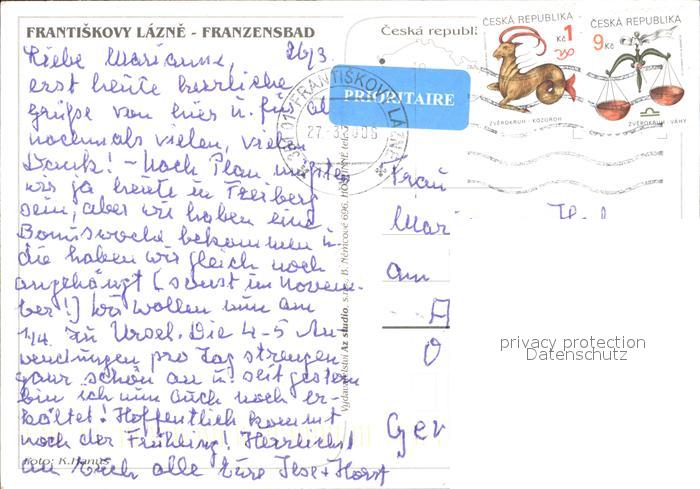 FRANTIŠKOVY LÁZNĚ - FRANZENSBAD
Česká republi
ČESKÁ REPUBLIKA
1
Kč
ZVĚROKRUH - KOZOROH
ČESKÁ REPUBLIKA
9 Kč
ZVĚROKRUH - VÁHY
PRIORITAIRE
FRANTIŠKOVY LÁZNĚ
27.-3.2006
Liebe Marianne, 26/3
erst heute herzliche
Grüße von hier u. für al
nochmals vielen, vielen
Dank! - Nach Plan müßten
wir ja heute in Freiberg
sein, aber wir haben eine
Bonuswoche bekommen u.
die haben wir gleich noch
angehängt (sonst im Novem-
ber!) Wir wollen nun am
1/4. zu Ursel. Die 4-5 An-
wendungen pro Tag strengen
ganz schön an u. seit gestern
bin ich nun auch noch er-
kältet! Hoffentlich kommt
noch der Frühling! Herzlichst
an Euch alle Eure Ilse + Horst
Foto: K. Hanuš
Vydavatelství Az studio, s.r.o. B. Němcové 696,
Frau
Mari
am
A
O
Ger
privacy protection
Datenschutz